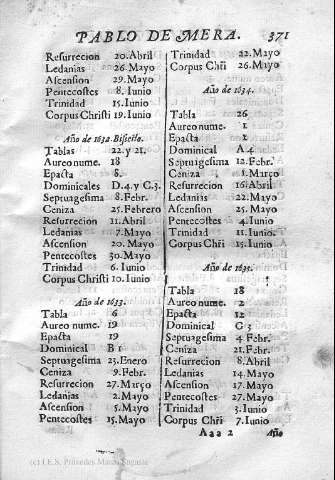 PABLO DE MERA. 371
Resurrecion 20. Abril
Ledanias 26. Mayo
Ascension 29. Mayo
Pentecostes 8. Iunio
Trinidad 15. Iunio
Corpus Christi 19. Iunio
Año de 1632. Bisesto.
Tablas 22. y 21.
Aureo nume. 18
Epacta 8.
Dominicales D. 4. y C. 3.
Septuagesima 8. Febr.
Ceniza 25. Febrero
Resurrecion 11. Abril
Ledanias 7. Mayo
Ascension 20. Mayo
Pentecostes 30. Mayo
Trinidad 6. Iunio
Corpus Christi 10. Iunio.
Año de 1633.
Tabla 6
Aureo nume. 19
Epacta 19
Dominical B 1
Septuagesima 23. Enero
Ceniza 9. Febr.
Resurrecion 27. Março
Ledanias 2. Mayo
Ascension 5. Mayo
Pentecostes 15. Mayo.
Trinidad 22. Mayo
Corpus Chři 26. Mayo
Año de 1634.
Tabla 26
Aureo nume. 1
Epacta 1
Dominical A 4
Septuagesima 12. Febr.
Ceniza 1. Março
Resurrecion 16. Abril
Ledanias 22. Mayo
Ascension 25. Mayo
Pentecostes 4. Iunio
Trinidad 11. Iunio.
Corpus Chři 15. Iunio
Año de 1635.
Tabla 18
Aureo nume. 2
Epacta 12
Dominical G 3
Septuagesima 4. Febr.
Ceniza 21. Febr.
Resurrecion 8. Abril
Ledanias 14. Mayo
Ascension 17. Mayo
Pentecostes 27. Mayo
Trinidad 3. Iunio
Corpus Chři 7. Iunio
Aaa 2 Año
(c) I.E.S. Práxedes Mateo Sagasta